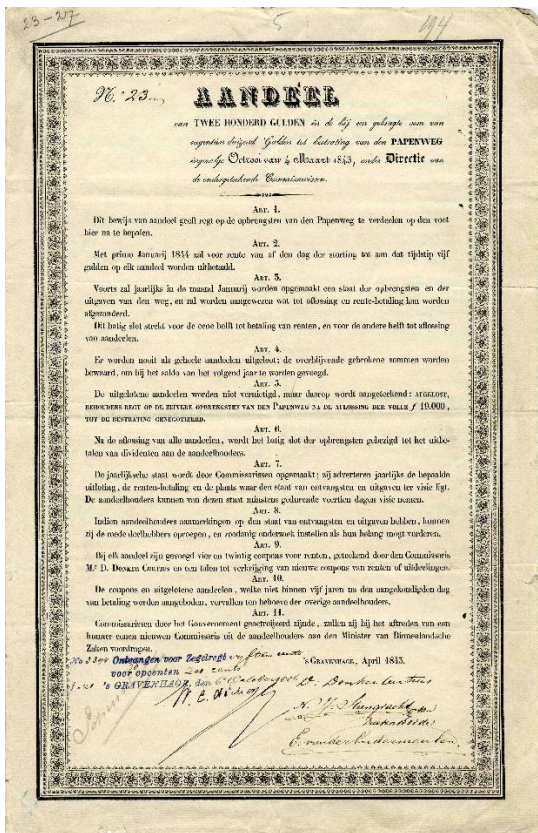 23-27
5
194
N.º 23
AANDEEL
van TWEE HONDERD GULDEN in de bij een gebragte som van
negentien duizend Gulden tot bestrating van den PAPENWEG
ingevolge Octrooi van 4 Maart 1843, onder Directie van
de ondergeteekende Commissarissen.
ART. 1.
Dit bewijs van aandeel geeft regt op de opbrengsten van den Papenweg te verdeelen op den voet
hier na te bepalen.
ART. 2.
Met primo Januarij 1844 zal voor rente van af den dag der storting tot aan dat tijdstip vijf
gulden op elk aandeel worden uitbetaald.
ART. 3.
Voorts zal jaarlijks in de maand Januarij worden opgemaakt een staat der opbrengsten en der
uitgaven van den weg, en zal worden aangewezen wat tot aflossing en rente-betaling kan worden
afgezonderd.
Dit batig slot strekt voor de eene helft tot betaling van renten, en voor de andere helft tot aflossing
van aandeelen.
ART. 4.
Er worden nooit als geheele aandeelen uitgeloot: de overblijvende gebrokene sommen worden
bewaard, om bij het saldo van het volgend jaar te worden gevoegd.
ART. 5.
De uitgelotene aandeelen worden niet vernietigd, maar daarop wordt aangeteekend: AFGELOST,
BEHOUDENS REGT OP DE ZUIVERE OPBRENGSTEN VAN DEN PAPENWEG NA DE AFLOSSING DER VOLLE ƒ 19.000,
TOT DE BESTRATING GENEGOTIEERD.
ART. 6.
Na de aflossing van alle aandeelen, wordt het batig slot der opbrengsten gebezigd tot het uitbe-
talen van dividenten aan de aandeelhouders.
ART. 7.
De jaarlijksche staat wordt door Commissarissen opgemaakt; zij adverteren jaarlijks de bepaalde
uitloting, de renten-betaling en de plaats waar den staat van ontvangsten en uitgaven ter visie ligt.
De aandeelhouders kunnen van dezen staat minstens gedurende veertien dagen visie nemen.
ART. 8.
Indien aandeelhouders aanmerkingen op den staat van ontvangsten en uitgaven hebben, kunnen
zij de mede deelhebbers oproepen, en zoodanig onderzoek instellen als hun belang mogt vorderen.
ART. 9.
Bij elk aandeel zijn gevoegd vier en twintig coupons voor renten, geteekend door den Commissaris
Mr. D. DONKER CURTIUS en een talon tot verkrijging van nieuwe coupons van renten of uitdeelingen.
ART. 10.
De coupons en uitgelotene aandeelen, welke niet binnen vijf jaren na den aangekondigden dag
van betaling worden aangeboden, vervallen ten behoeve der overige aandeelhouders.
ART. 11.
Commissarissen door het Gouvernement geoctroijeerd zijnde, zullen zij bij het aftreden van een
hunner eenen nieuwen Commissaris uit de aandeelhouders aan den Minister van Binnenlandsche
Zaken voordragen.
'S GRAVENHAGE, April 1843.
Ontvangen voor Zegelregt vijftien cents
voor opcenten
'S GRAVENHAGE, den
D. Donker Curtius